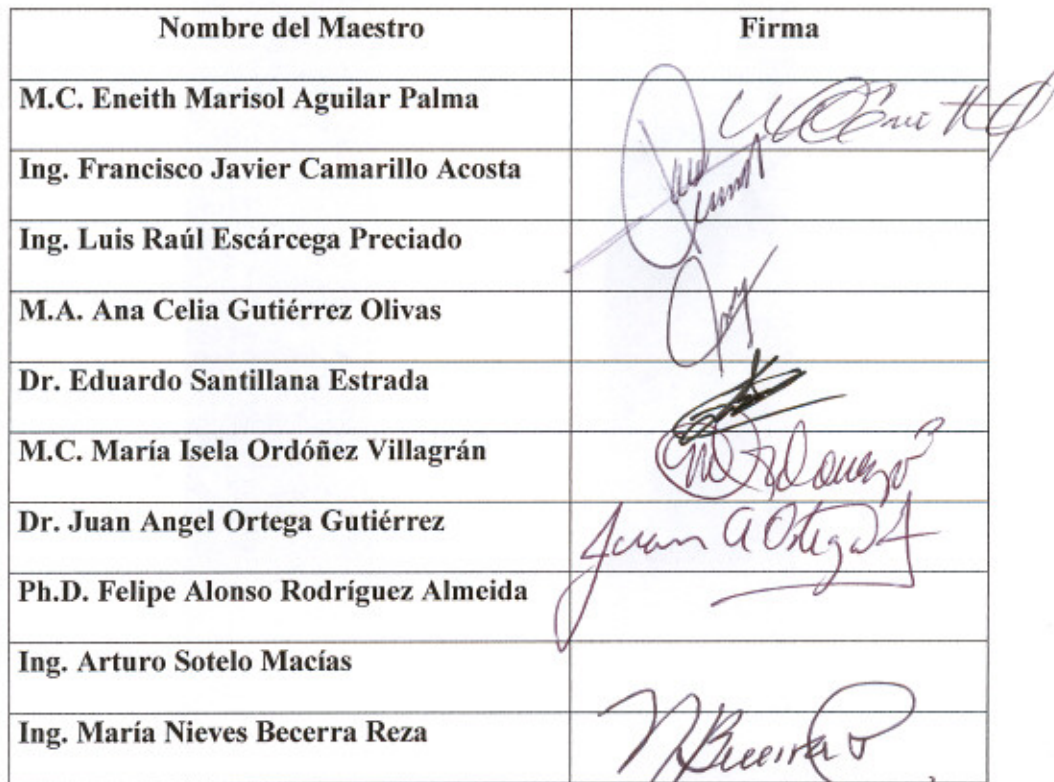 Nombre del Maestro Firma
M.C. Eneith Marisol Aguilar Palma
Ing. Francisco Javier Camarillo Acosta
Ing. Luis Raúl Escárcega Preciado
M.A. Ana Celia Gutiérrez Olivas
Dr. Eduardo Santillana Estrada
M.C. María Isela Ordóñez Villagrán
Dr. Juan Angel Ortega Gutiérrez Juan A Ortega G
Ph.D. Felipe Alonso Rodríguez Almeida
Ing. Arturo Sotelo Macías
Ing. María Nieves Becerra Reza N Becerra R